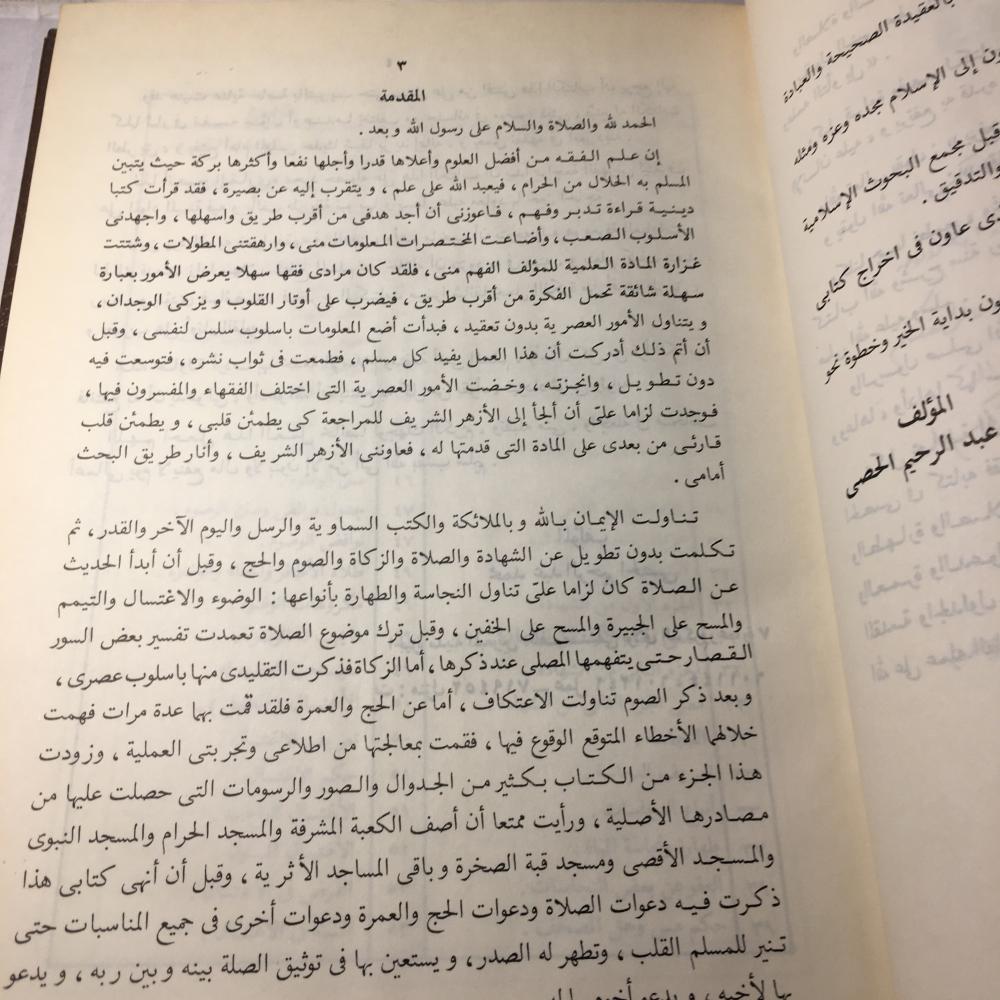 ٣
المقدمة
الحمد لله والصلاة والسلام على رسول الله و بعد .
إن علم الفقه من أفضل العلوم وأعلاها قدرا وأجلها نفعا وأكثرها بركة حيث يتبين
المسلم به الحلال من الحرام ، فيعبد الله على علم ، و يتقرب إليه عن بصيرة ، فقد قرأت كتبا
دينية قراءة تدبر وفهم ، فاعوزنى أن أجد هدفى من أقرب طر يق واسهلها ، واجهدنى
الأسلوب الصعب ، وأضاعت المختصرات المعلومات منى ، وارهقتنى المطولات ، وشتتت
غزارة المادة العلمية للمؤلف الفهم منى ، فلقد كان مرادى فقها سهلا يعرض الأمور بعبارة
سهلة شائقة تحمل الفكرة من أقرب طر يق ، فيضرب على أوتار القلوب و يزكى الوجدان ،
و يتناول الأمور العصر ية بدون تعقيد ، فبدأت أضع المعلومات باسلوب سلس لنفسى ، وقبل
أن أتم ذلك أدركت أن هذا العمل يفيد كل مسلم ، فطمعت فى ثواب نشره ، فتوسعت فيه
دون تطو يل ، وانجزته ، وخضت الأمور العصر ية التى اختلف الفقهاء والمفسرون فيها ،
فوجدت لزاما علىّ أن ألجأ إلى الأزهر الشر يف للمراجعة كى يطمئن قلبى ، و يطمئن قلب
قارئى من بعدى على المادة التى قدمتها له ، فعاوننى الأزهر الشر يف ، وأنار طر يق البحث
أمامى .
تناولت الإيمان بالله و بالملائكة والكتب السماو ية والرسل واليوم الآخر والقدر ، ثم
تكلمت بدون تطو يل عن الشهادة والصلاة والزكاة والصوم والحج ، وقبل أن أبدأ الحديث
عن الصلاة كان لزاما علىّ تناول النجاسة والطهارة بأنواعها : الوضوء والاغتسال والتيمم
والمسح على الجبيرة والمسح على الخفين ، وقبل ترك موضوع الصلاة تعمدت تفسير بعض السور
القصار حتى يتفهمها المصلى عند ذكرها ، أما الزكاة فذكرت التقليدى منها باسلوب عصرى ،
و بعد ذكر الصوم تناولت الاعتكاف ، أما عن الحج والعمرة فلقد قمت بهما عدة مرات فهمت
خلالهما الأخطاء المتوقع الوقوع فيها ، فقمت بمعالجتها من اطلاعى وتجر بتى العملية ، وزودت
هذا الجزء من الكتاب بكثير من الجدوال والصور والرسومات التى حصلت عليها من
مصادرها الأصلية ، ورأيت ممتعا أن أصف الكعبة المشرفة والمسجد الحرام والمسجد النبوى
والمسجد الأقصى ومسجد قبة الصخرة و باقى المساجد الأثر ية ، وقبل أن أنهى كتابى هذا
ذكرت فيه دعوات الصلاة ودعوات الحج والعمرة ودعوات أخرى فى جميع المناسبات حتى
تنير للمسلم القلب ، وتطهر له الصدر ، و يستعين بها فى توثيق الصلة بينه و بين ربه ، و يدعو
بها لأخيه ، و يدعو أخوه
بالعقيدة الصحيحة والعبادة
ون إلى الإسلام مجده وعزه ومثله
قبل مجمع البحوث الإسلامية
والتدقيق .
عاون فى اخراج كتابى
ون بداية الخير وخطوة نحو
المؤلف
عبد الرحيم الحصى